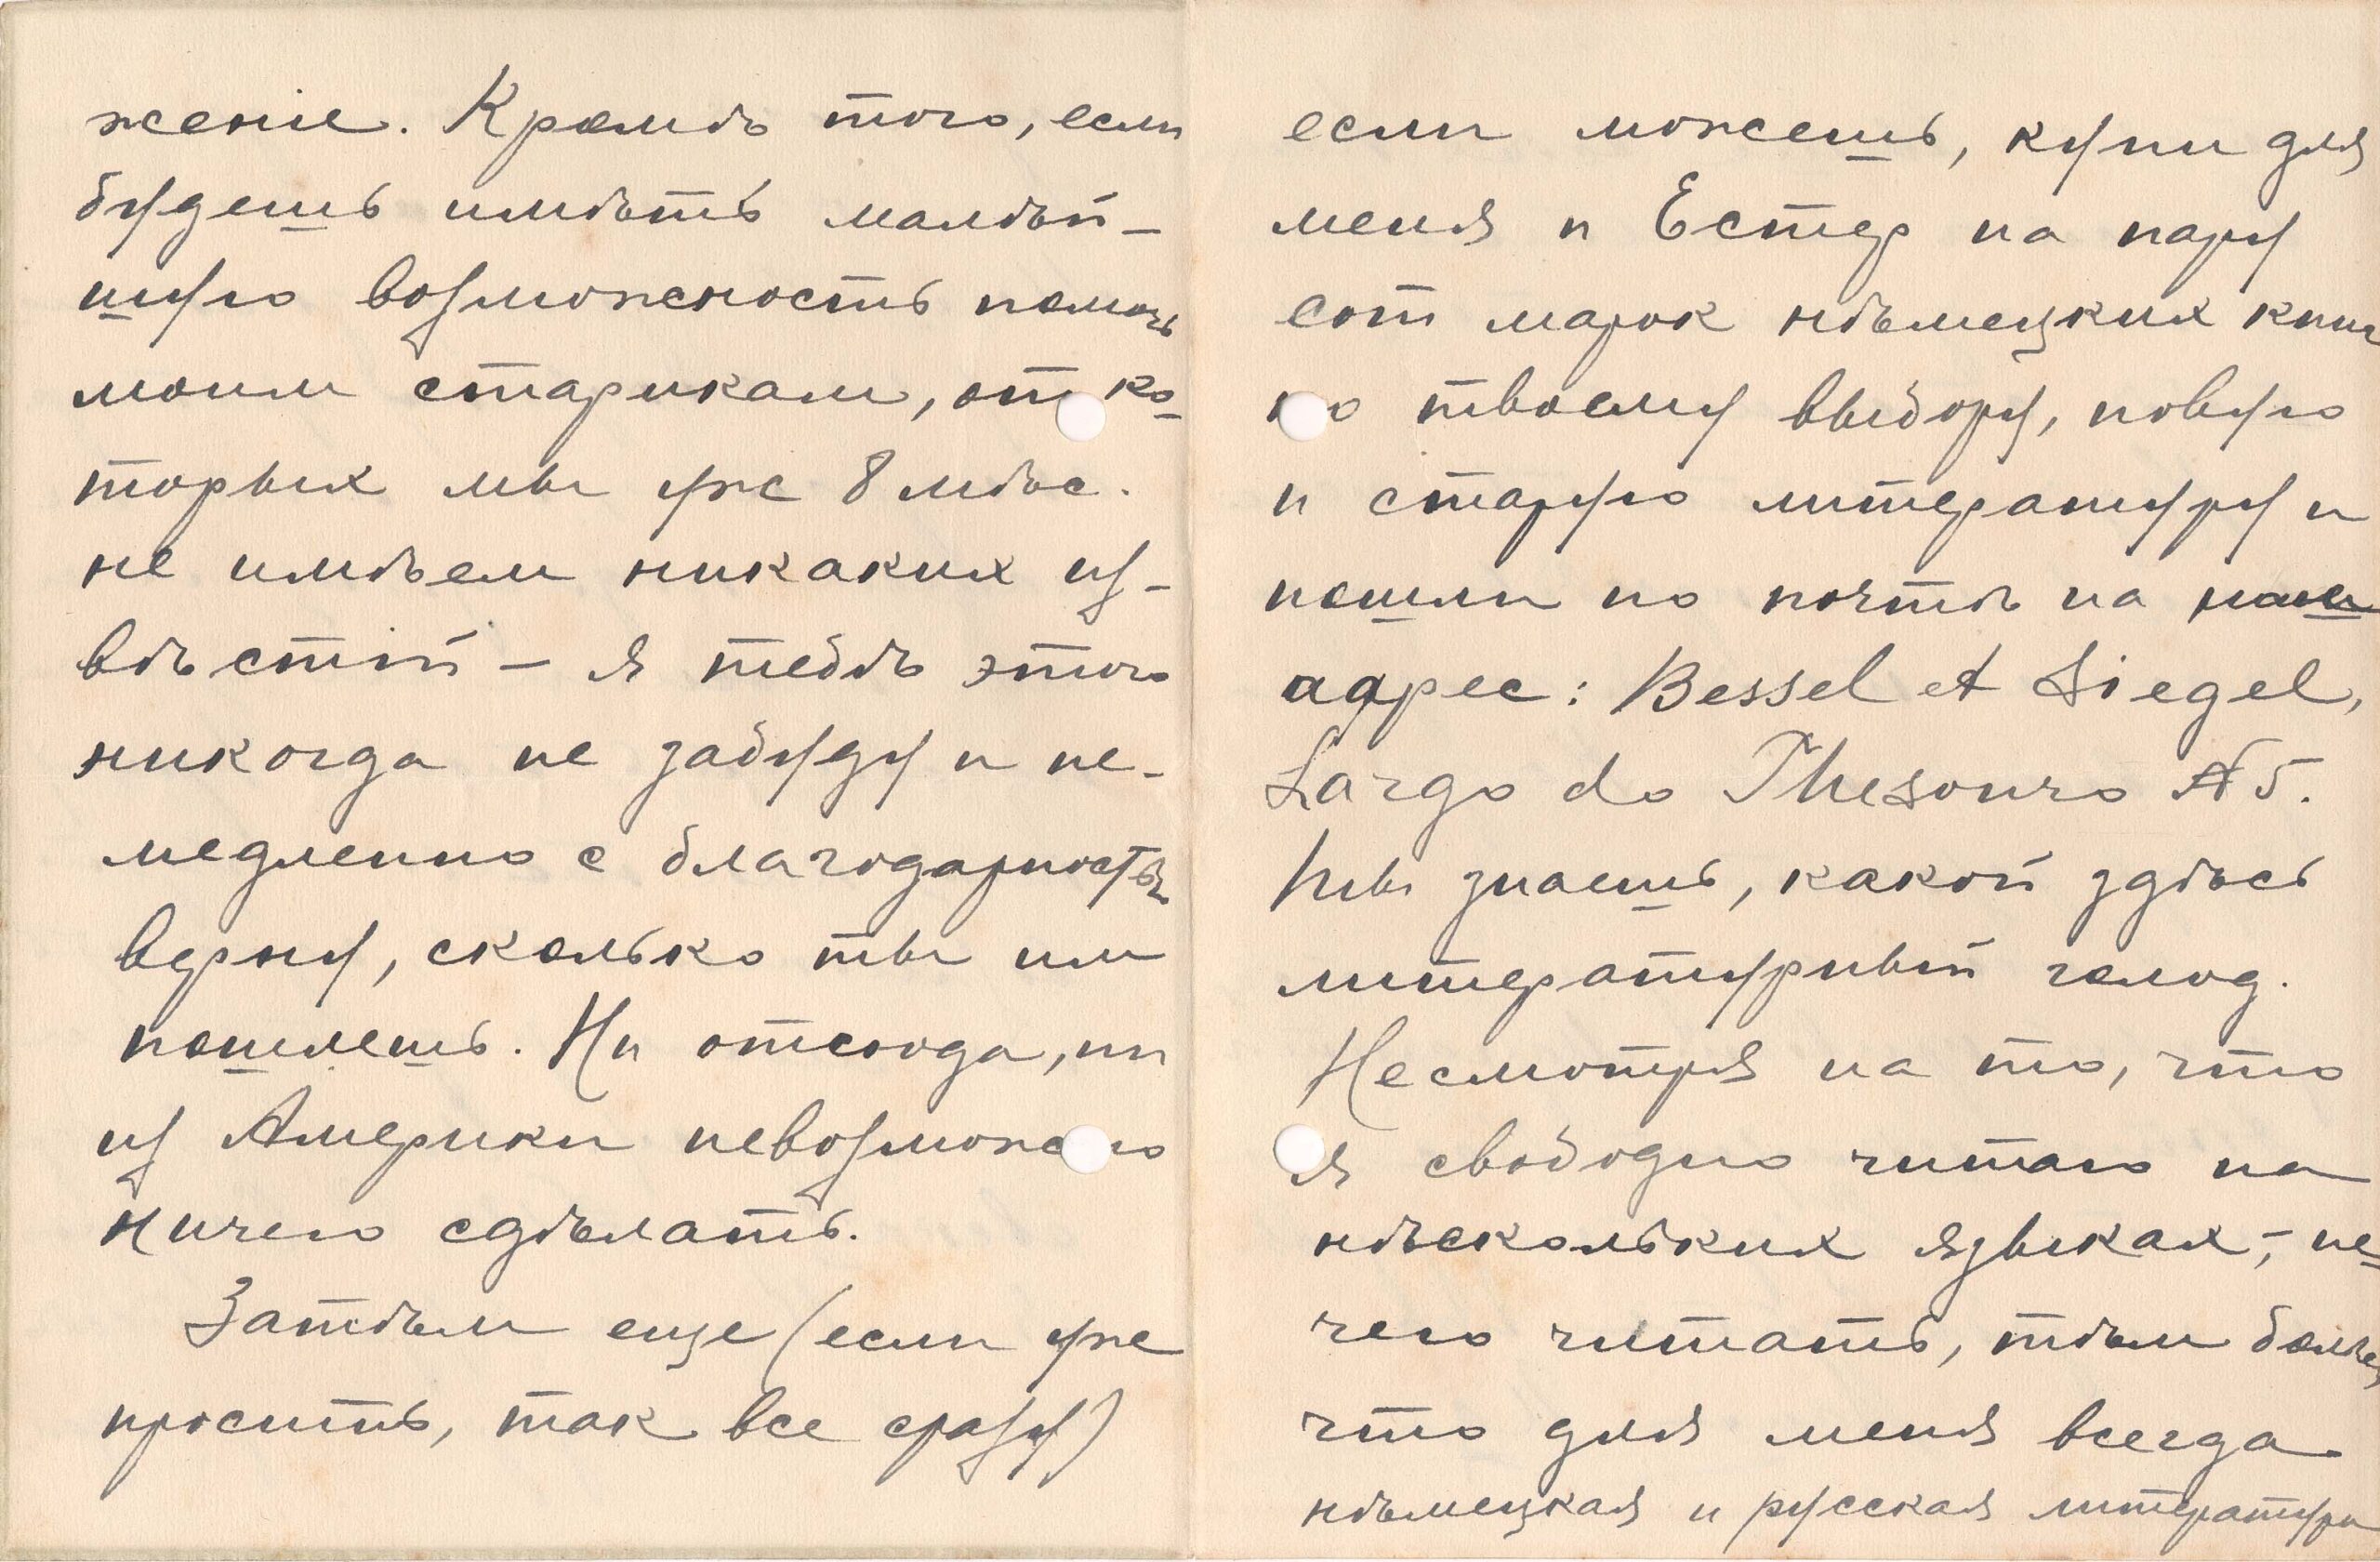 женіе. Кромѣ того, если
будешь имѣть малѣй-
шую возможность помочь
моим старикам, от ко-
торых мы уже 8 мѣс.
не имѣем никаких из-
вѣстій – я тебѣ этого
никогда не забуду и не-
медленно с благодарностью
верну, сколько ты им
пошлешь. Ни отсюда, ни
из Америки невозможно
ничего сдѣлать.
Затѣм еще (если уже
просить, так все сразу)
если можешь, купи для
меня и Естер на пару
сот марок нѣмецких книг
по твоему выбору, новую
и старую литературу и
пошли по почтѣ на наш
адрес: Bessel et Siegel,
Largo do Thesouro № 5.
Ты знаешь, какой здѣсь
литературный голод.
Несмотря на то, что
я свободно читаю на
нѣскольких языках, – не-
чего читать, тѣм болѣе,
что для меня всегда
нѣмецкая и русская литература